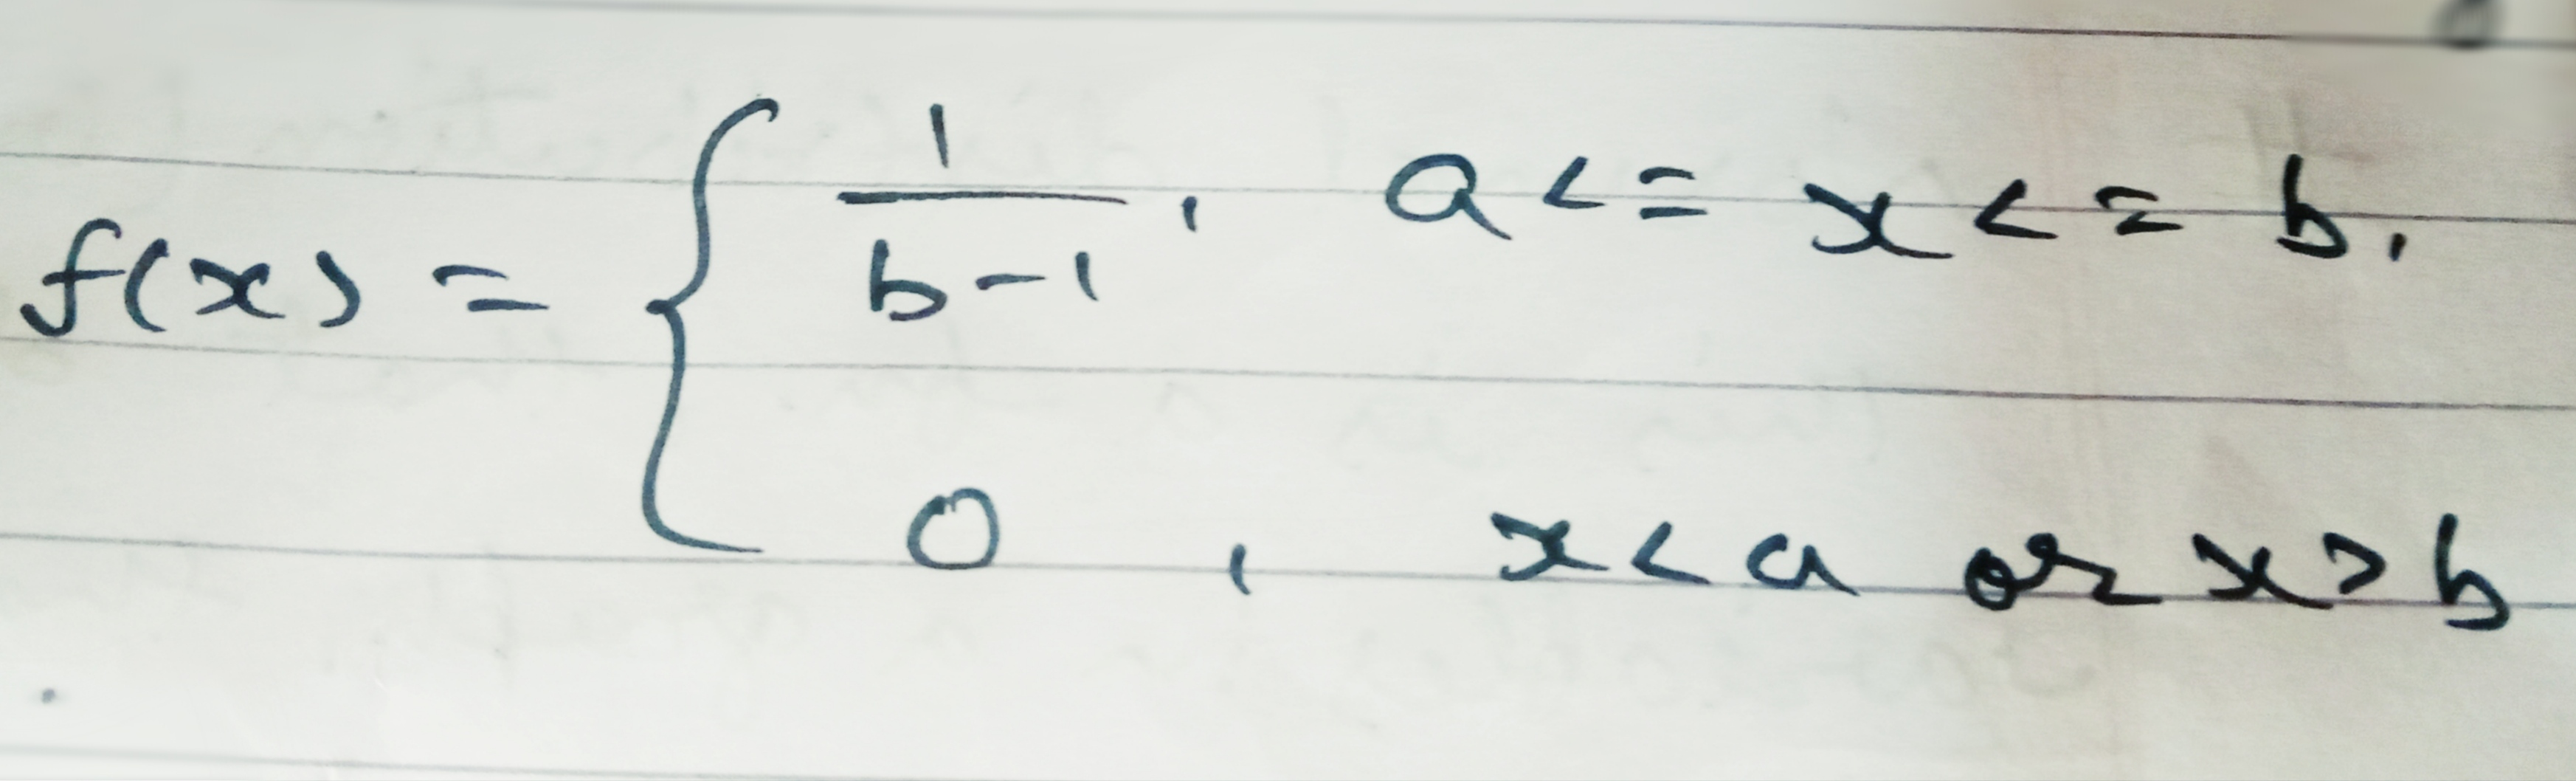 f(x) = { 1/(b-1), a <= x <= b,
0, x < a or x > b